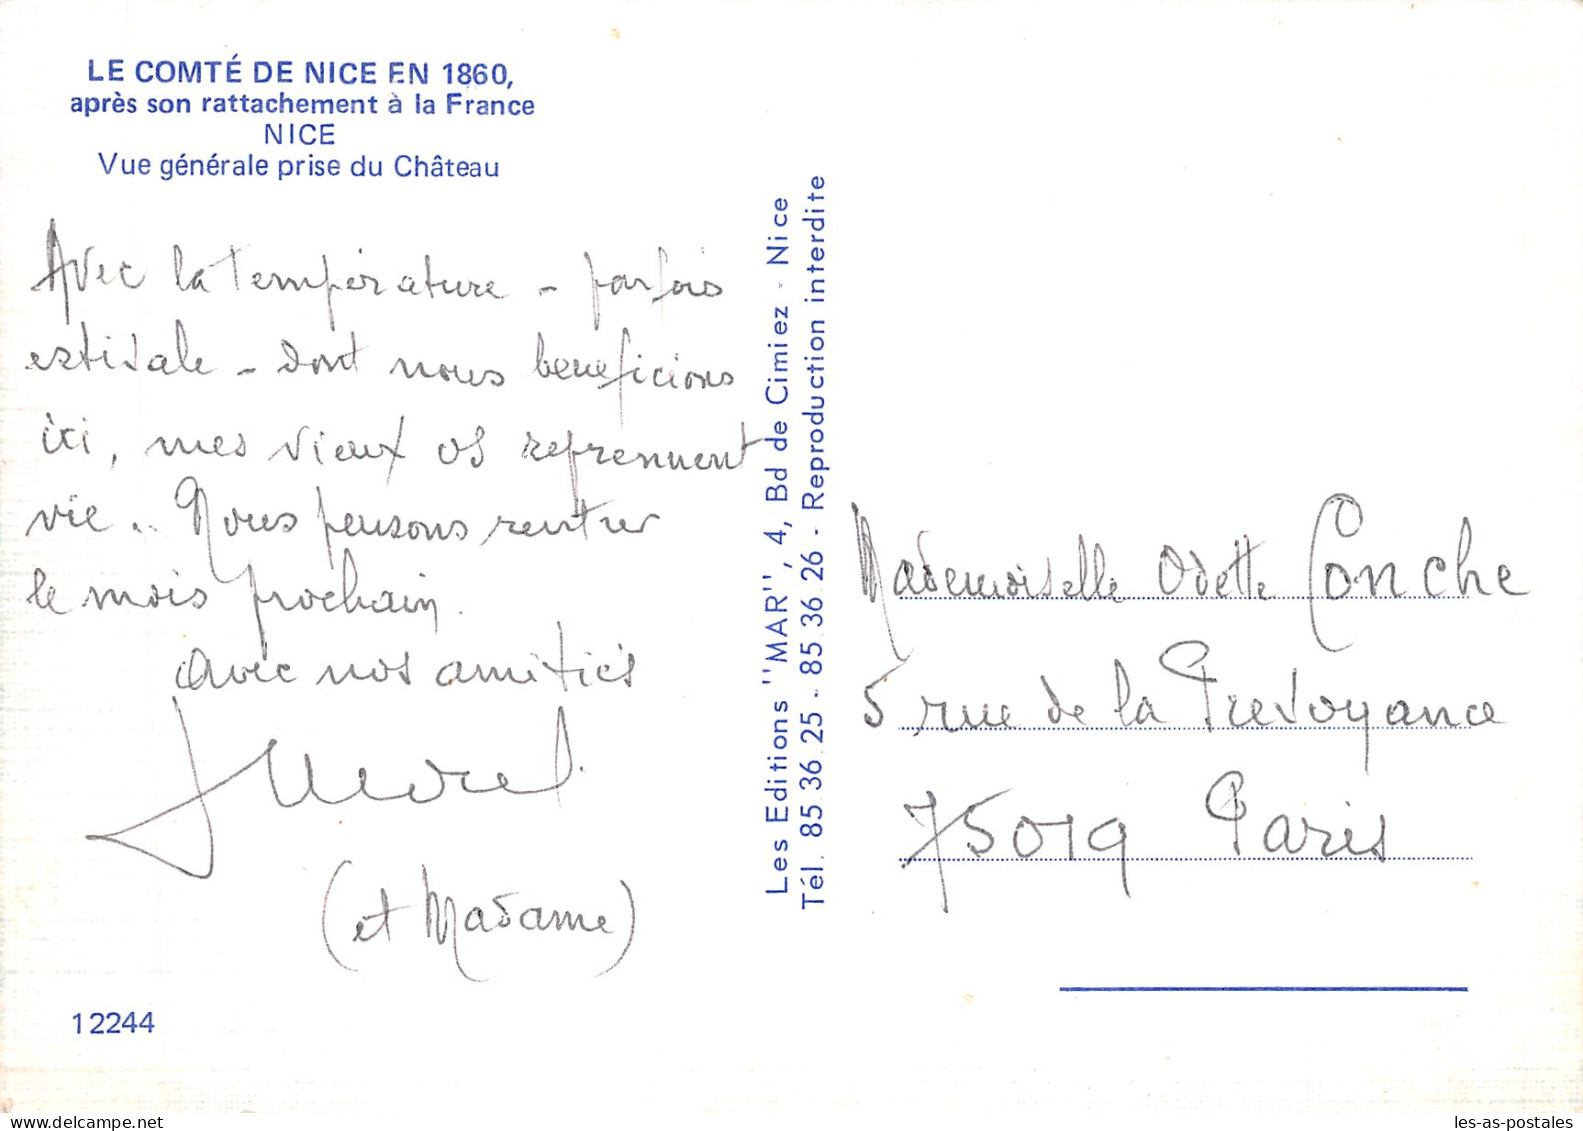 LE COMTÉ DE NICE EN 1860,
après son rattachement à la France
NICE
Vue générale prise du Château
Avec la température - parfois
estivale - dont nous beneficions
ici, mes vieux os reprennent
vie.. Nous pensons rentrer
le mois prochain.
avec nos amitiés
(et Madame)
12244
Les Editions "MAR", 4, Bd de Cimiez - Nice
Tél. 85.36.25 - 85.36.26 - Reproduction interdite
Mademoiselle Odette Conche
5 rue de la Prevoyance
75019 Paris
les-as-postales